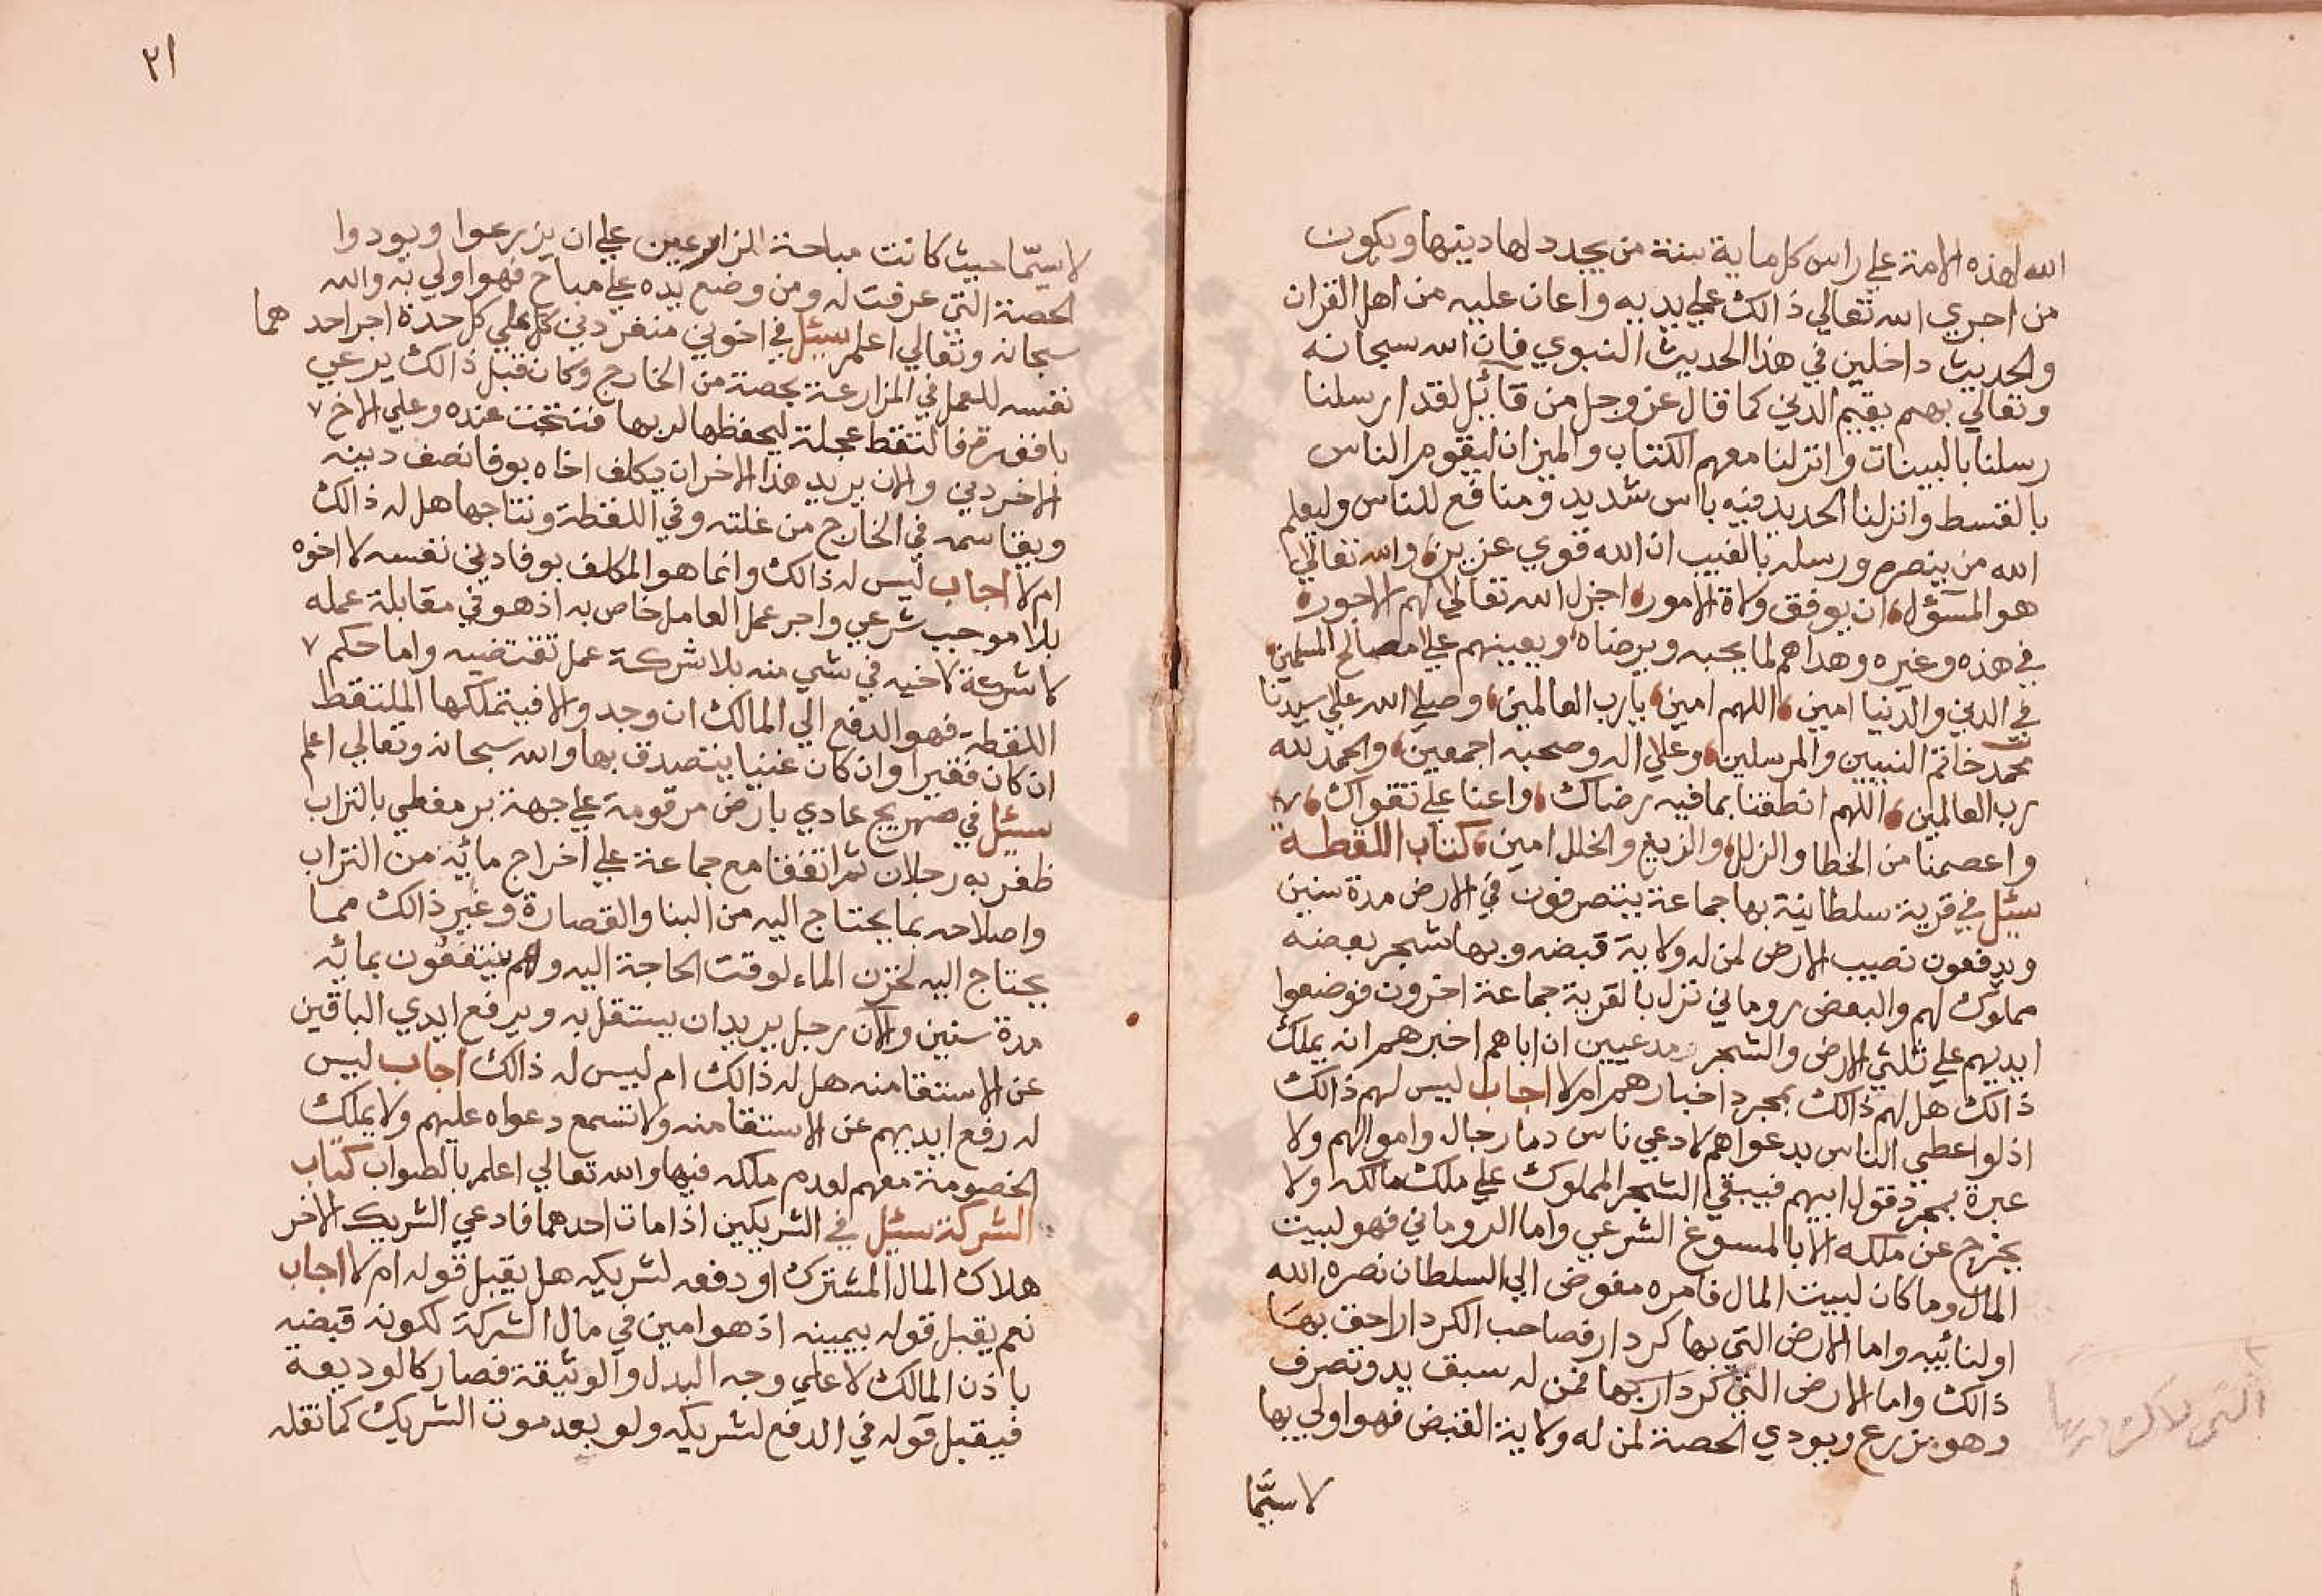 الله لهذه الامة علي راس كل ماية سنة من يجدد لها دينها ويكون
من اجري الله تعالي ذالك علي يديه واعان عليه من اهل القران
والحديث داخلين في هذا الحديث النبوي فان الله سبحانه
وتعالي بهم يقيم الدين كما قال عز وجل من قائل لقد ارسلنا
رسلنا بالبينات وانزلنا معهم الكتاب والميزان ليقوم الناس
بالقسط وانزلنا الحديد فيه باس شديد ومنافع للناس وليعلم
الله من ينصره ورسله بالغيب ان الله قوي عزيز والله تعالي
هو المسؤل ان يوفق ولاة الامور اجزل الله تعالي لهم الاجور
في هذه وغيره وهداهم لما يحبه ويرضاه ويعينهم علي مصالح المسلمين
في الدين والدنيا امين اللهم امين يارب العالمين وصلي الله علي سيدنا
محمد خاتم النبيين والمرسلين وعلي اله وصحبه اجمعين والحمد لله
رب العالمين اللهم انطقنا بما فيه رضاك واعنا علي تقواك
واعصمنا من الخطا والزلل والزيغ والخلل امين كتاب اللقطة
سئل في قرية سلطانية بها جماعة يتصرفون في الارض مدة سنين
ويدفعون نصيب الارض لمن له ولاية قبضه وبها شجر بعضه
مملوك لهم والبعض روماني نزل بالقرية جماعة اخرون فوضعوا
ايديهم علي ثلثي الارض والشجر مدعيين ان اباهم اخبرهم انه يملك
ذالك هل لهم ذالك بمجرد اخبارهم ام لا اجاب ليس لهم ذالك
اذ لو اعطي الناس بدعواهم لادعي ناس دما رجال واموالهم ولا
عبرة بمجرد قول ابيهم فيبقي الشجر المملوك علي ملك مالكه ولا
يخرج عن ملكه الا بالمسوغ الشرعي واما الروماني فهو لبيت
المال وما كان لبيت المال فامره مفوض الي السلطان نصره الله
او لنائبه واما الارض التي بها كردار فصاحب الكردار احق بها
ذالك واما الارض التي كردار بها فمن له سبق يد وتصرف
وهو يزرع ويودي الحصة لمن له ولاية القبض فهو اولي بها
لا سيما
٢١
لا سيما حيث كانت مباحة المزارعين علي ان يزرعوا ويودوا
الحصة التي عرفت له ومن وضع يده علي مباح فهو اولي به والله
سبحانه وتعالي اعلم سئل في اخوين منفردين كل علي كل حدة اجر احد هما
نفسه للعمل في المزارعة بحصة من الخارج وكان قبل ذالك يرعي
فالتقط عجلة ليحفظها لربها فنتجت عنده وعلي الاخ
الاخر دين والان يريد هذا الاخر ان يكلف اخاه بوفا نصف دينه
ويقاسمه في الخارج من غلته وفي اللقطة ونتاجها هل له ذالك
ام لا اجاب ليس له ذالك وانما هو المكلف بوفا دين نفسه لا اخوه
بلا موجب شرعي واجر عمل العامل خاص به اذ هو في مقابلة عمله
لا شركة لاخيه في شي منه بلا شركة عمل تقتضيه واما حكم
اللقطة فهو الدفع الي المالك ان وجد والا فيتملكها الملتقط
ان كان فقيرا وان كان غنيا يتصدق بها والله سبحانه وتعالي اعلم
سئل في صهريج عادي بارض مرقومة علي جهة بر مغطي بالتراب
ظفر به رجلان ثم اتفقا مع جماعة علي اخراج مائه من التراب
واصلاحه بما يحتاج اليه من البنا والقصارة وغير ذالك مما
يحتاج اليه لخزن الماء لوقت الحاجة اليه وهم ينتفعون بمائه
مدة سنين والان رجل يريد ان يستقل به ويرفع ايدي الباقين
عن الاستقا منه هل له ذالك ام ليس له ذالك اجاب ليس
له رفع ايديهم عن الاستقا منه ولا تسمع دعواه عليهم ولا يملك
الخصومة معهم لعدم ملكه فيها والله تعالي اعلم بالصواب كتاب
الشركة سئل في الشريكين اذا مات احدهما فادعي الشريك الاخر
هلاك المال المشترك او دفعه لشريكه هل يقبل قوله ام لا اجاب
نعم يقبل قوله بيمينه اذ هو امين في مال الشركة لكونه قبضه
باذن المالك لا علي وجه البدل والوثيقة فصار كالوديعة
فيقبل قوله في الدفع لشريكه ولو بعد موت الشريك كما نقله